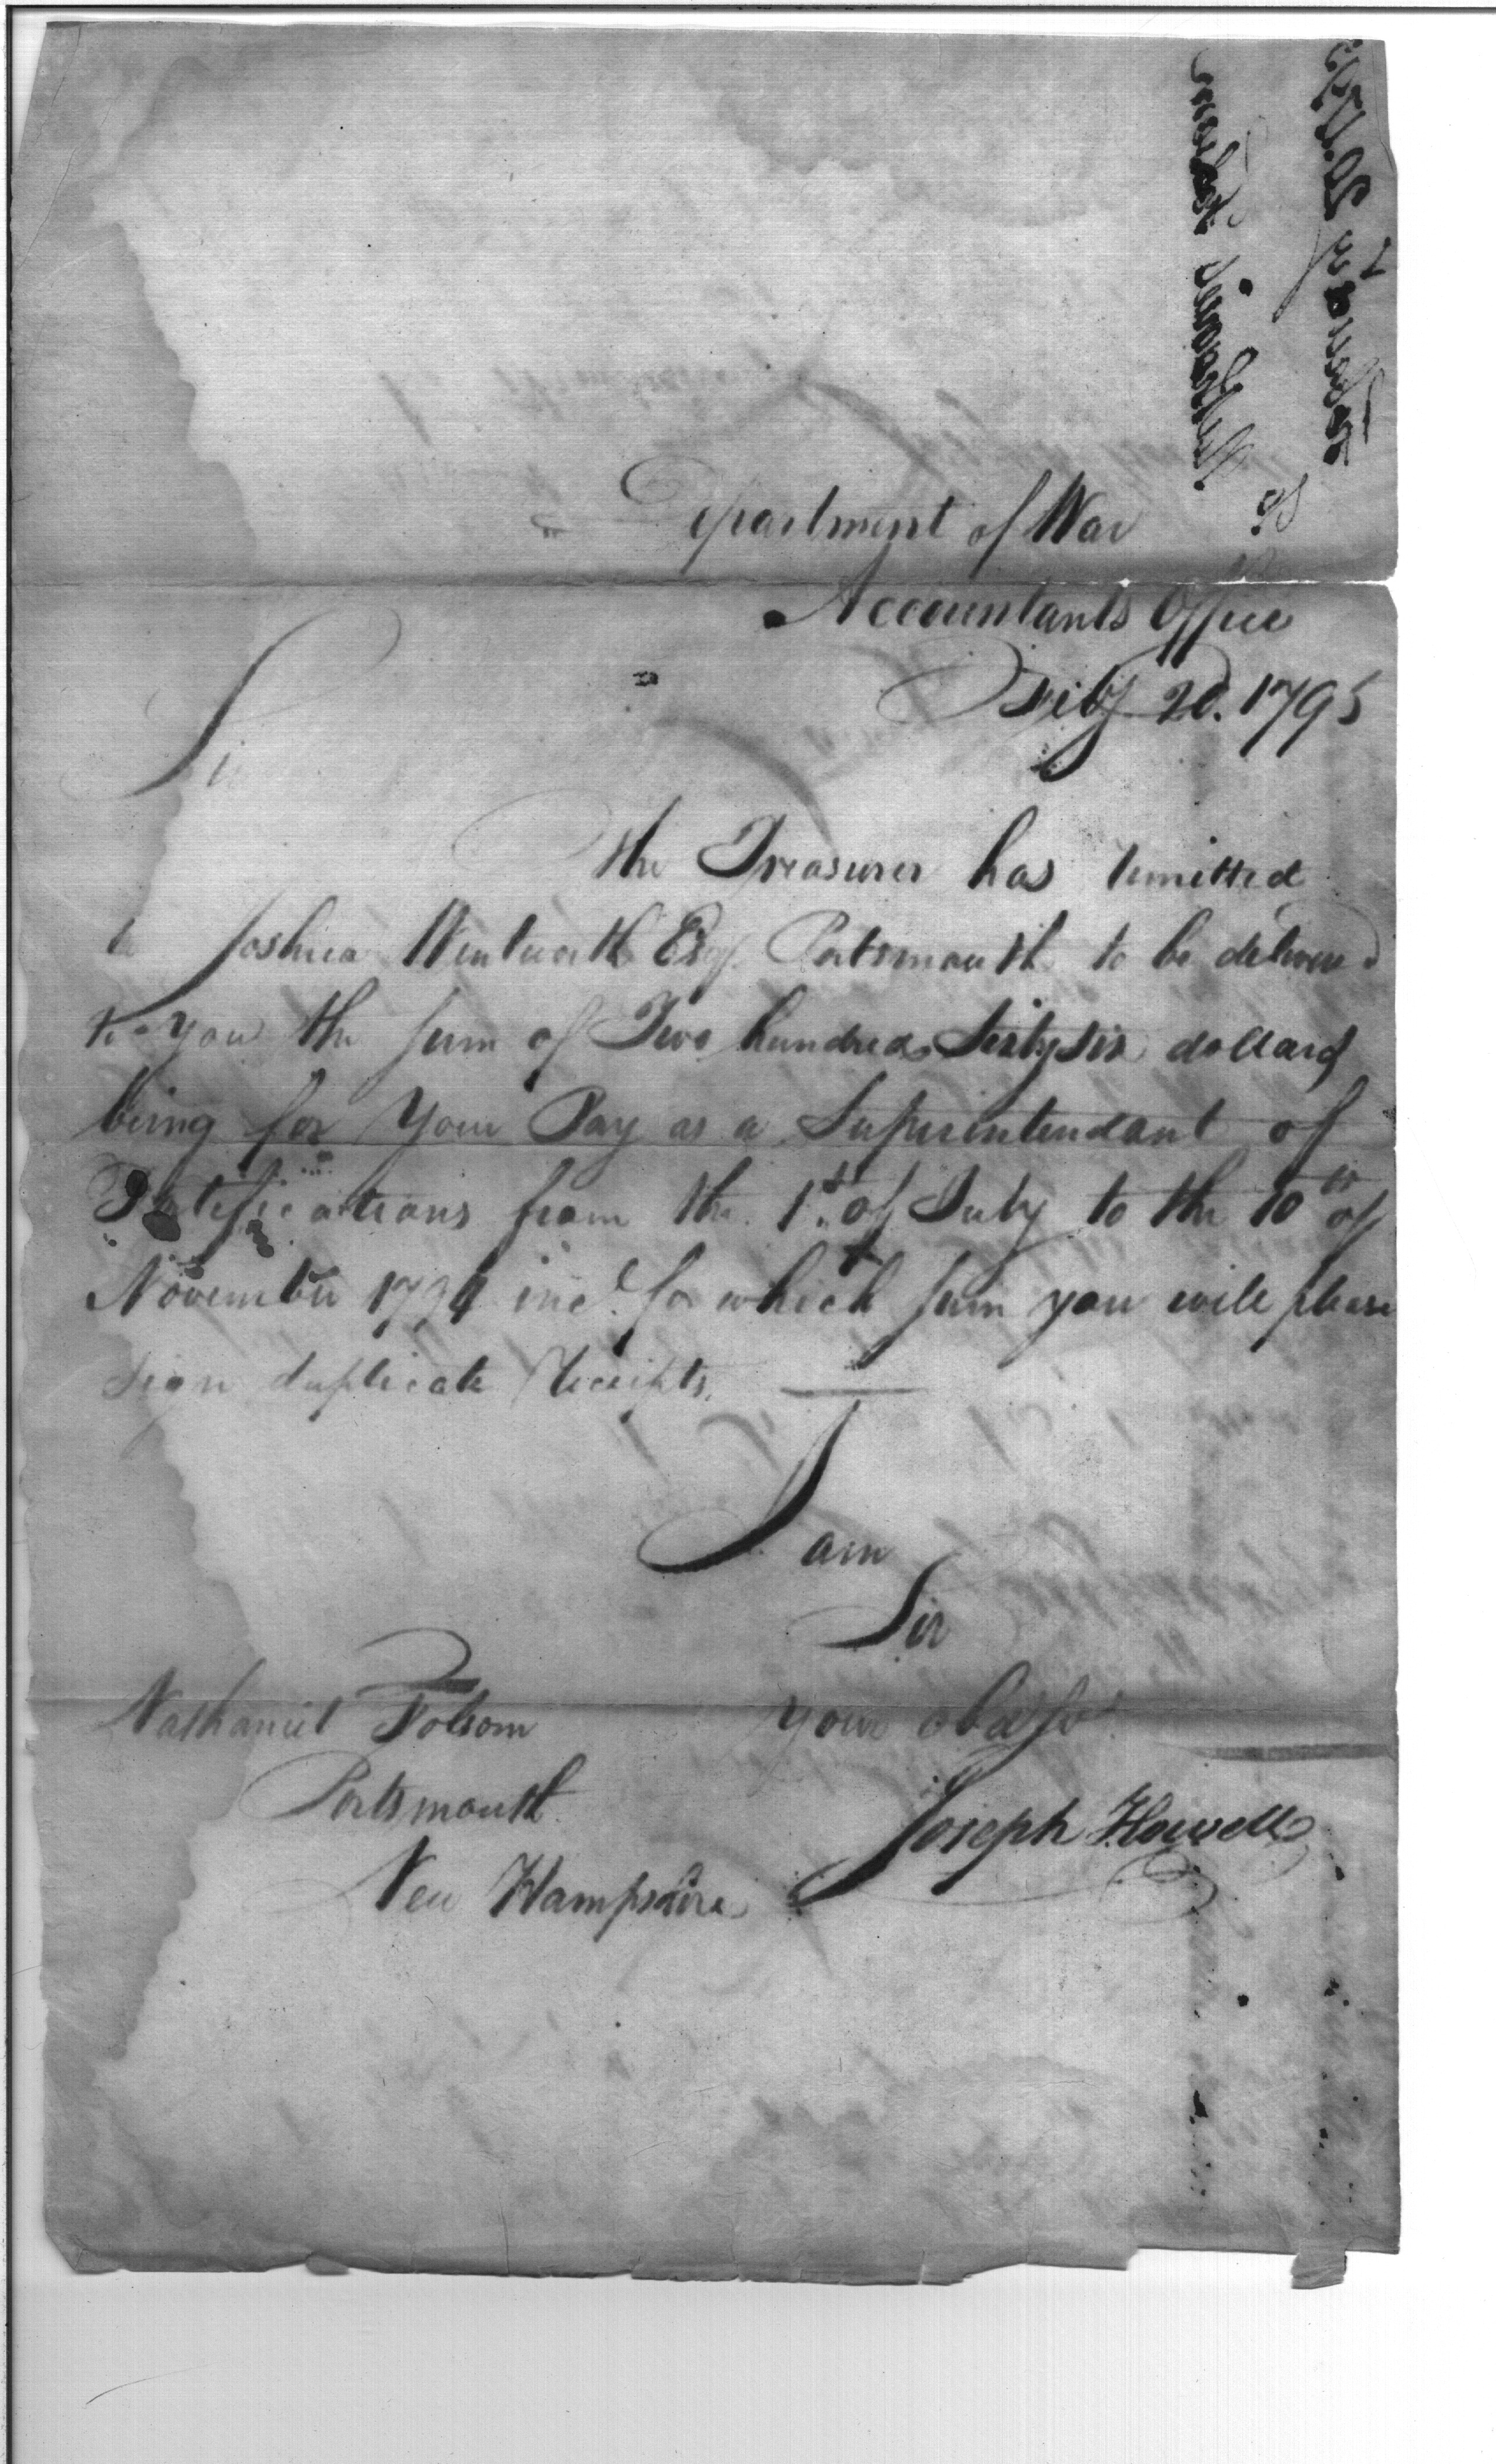 Department of War
Accountants Office
Feby 20. 1795
Sir
The Treasurer has remitted
to Joshua Wentworth Esqr. Portsmouth to be delivered
to you the sum of Two hundred Sixty six dollars
being for your Pay as a Superintendant of
Fortifications from the 1st of July to the 10th of
November 1794 incl. for which sum you will please
sign duplicate Receipts.
I am
Sir
Your obed Sv
Joseph Howell
Nathaniel Folsom
Portsmouth
New Hampshire
February 20. 1795
To
Nathaniel Folsom